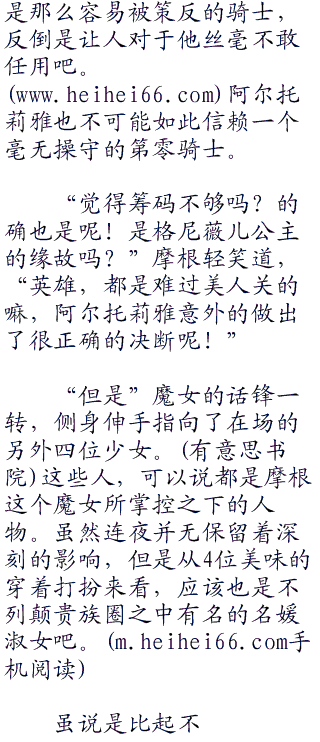 是那么容易被策反的骑士，
反倒是让人对于他丝毫不敢
任用吧。
(www.heihei66.com)阿尔托
莉雅也不可能如此信赖一个
毫无操守的第零骑士。
“觉得筹码不够吗？的
确也是呢！是格尼薇儿公主
的缘故吗？”摩根轻笑道，
“英雄，都是难过美人关的
嘛，阿尔托莉雅意外的做出
了很正确的决断呢！”
“但是”魔女的话锋一
转，侧身伸手指向了在场的
另外四位少女。(有意思书
院)这些人，可以说都是摩根
这个魔女所掌控之下的人
物。虽然连夜并无保留着深
刻的影响，但是从4位美味的
穿着打扮来看，应该也是不
列颠贵族圈之中有名的名媛
淑女吧。(m.heihei66.com手
机阅读)
虽说是比起不